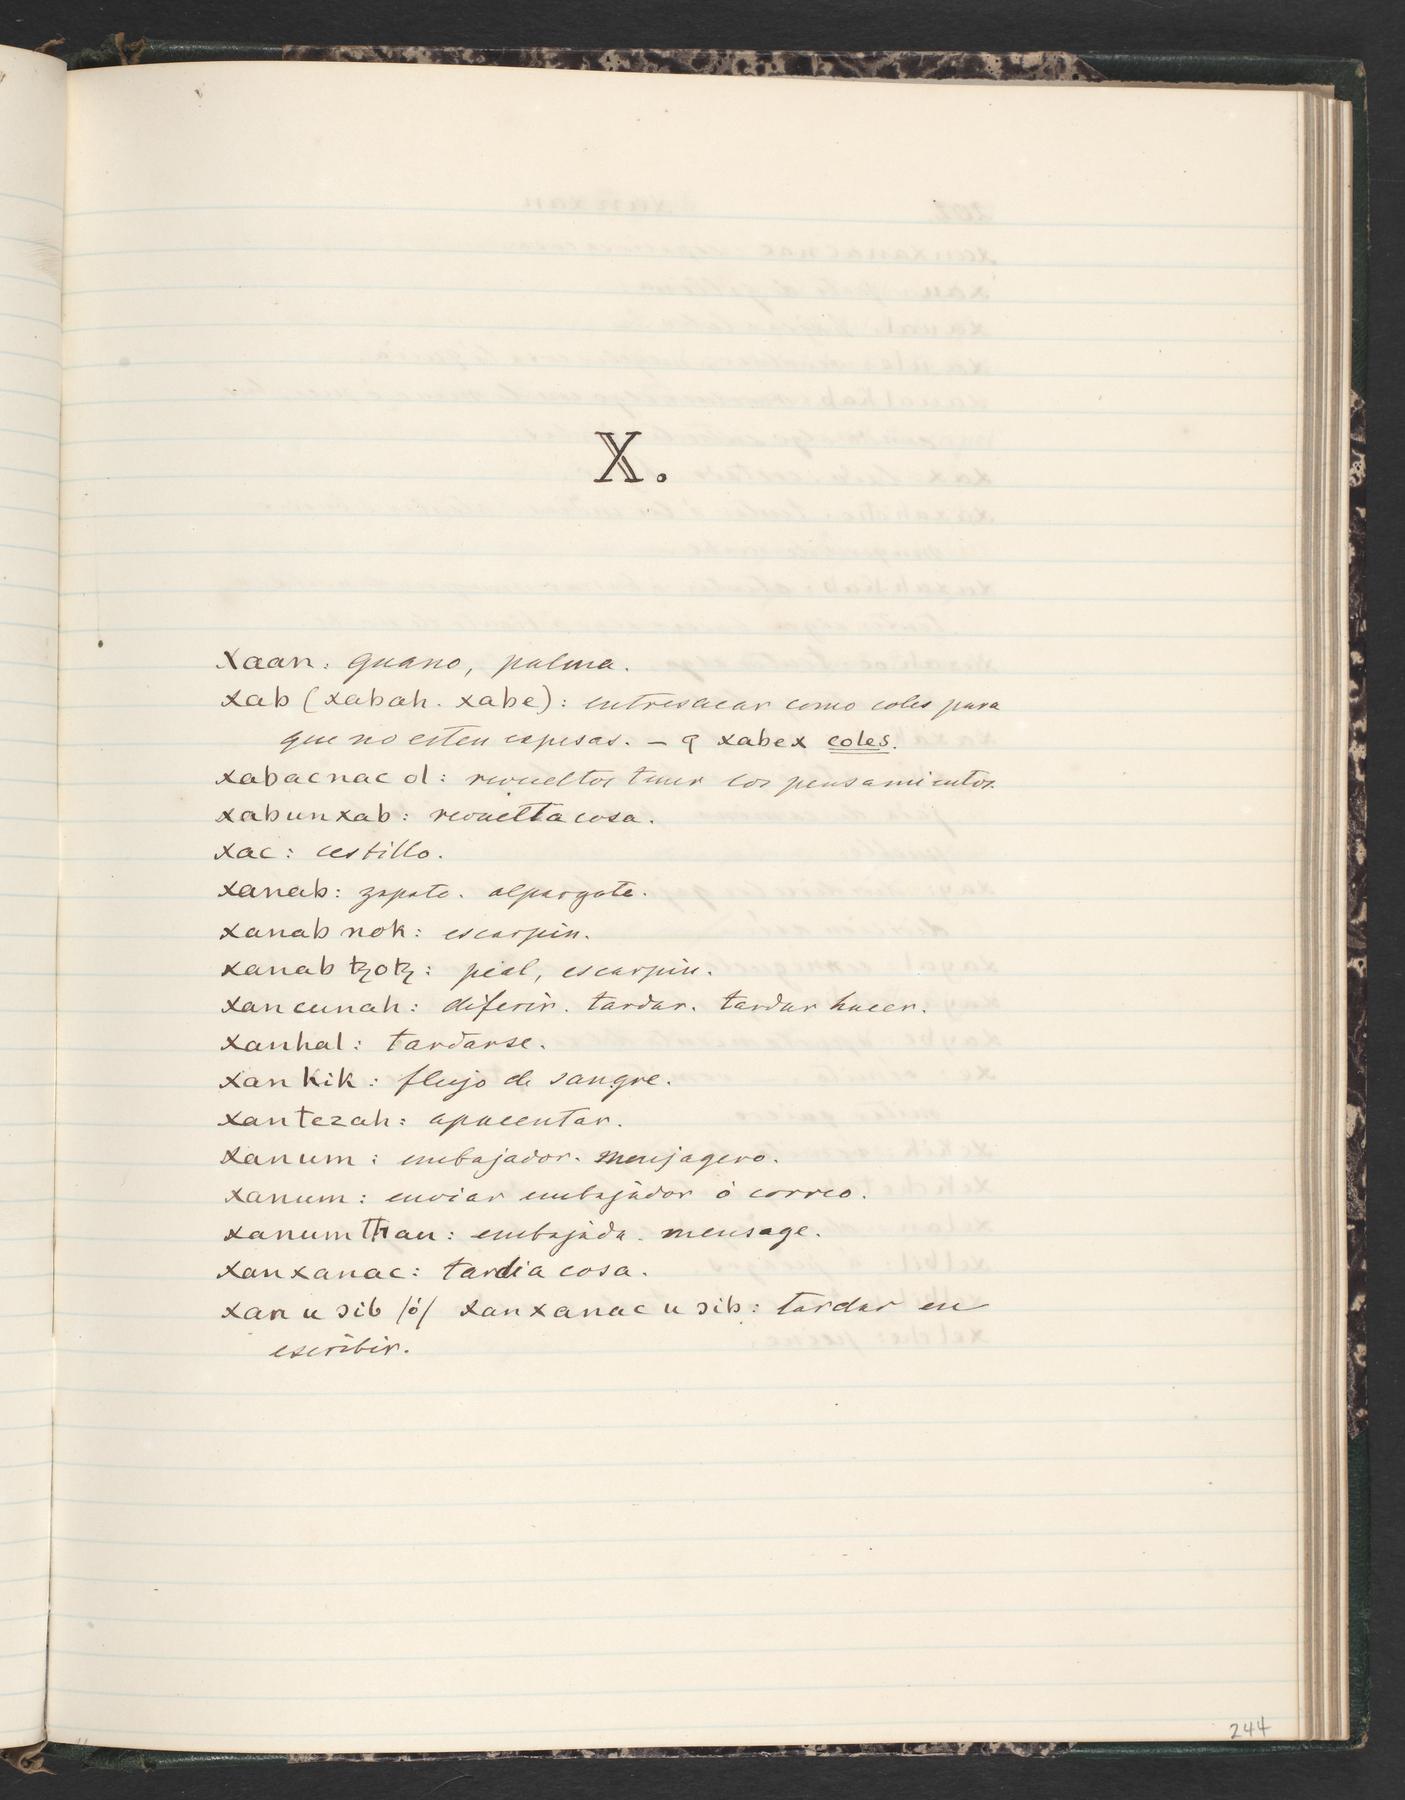 X.
Xaan: guano, palma.
xab (xabah. xabe): entresacar como coles para
que no esten espesas. – q xabex coles.
xabacnac ol: revueltos tener los pensamientos.
xabunxab: revuelta cosa.
xac: cestillo.
xanab: zapato. alpargate.
xanab nok: escarpin.
xanab ꜩoꜩ: peal, escarpin.
xancunah: diferir. tardar. tardar hacer.
xanhal: tardarse.
xan kik: flujo de sangre.
xantezah: apacentar.
xanum: embajador. mensjagero.
xanum: enviar embajador ó correo.
xanumthan: embajada. mensage.
xanxanac: tardia cosa.
xan u ɔib /ó/ xanxanac u ɔib: tardar en
escribir.
244